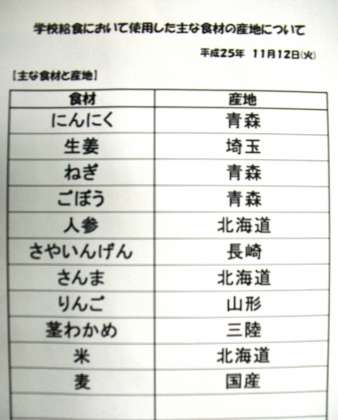 学校給食において使用した主な食材の産地について
平成25年 11月12日(火)
[主な食材と産地]
食材 産地
にんにく 青森
生姜 埼玉
ねぎ 青森
ごぼう 青森
人参 北海道
さやいんげん 長崎
さんま 北海道
りんご 山形
茎わかめ 三陸
米 北海道
麦 国産